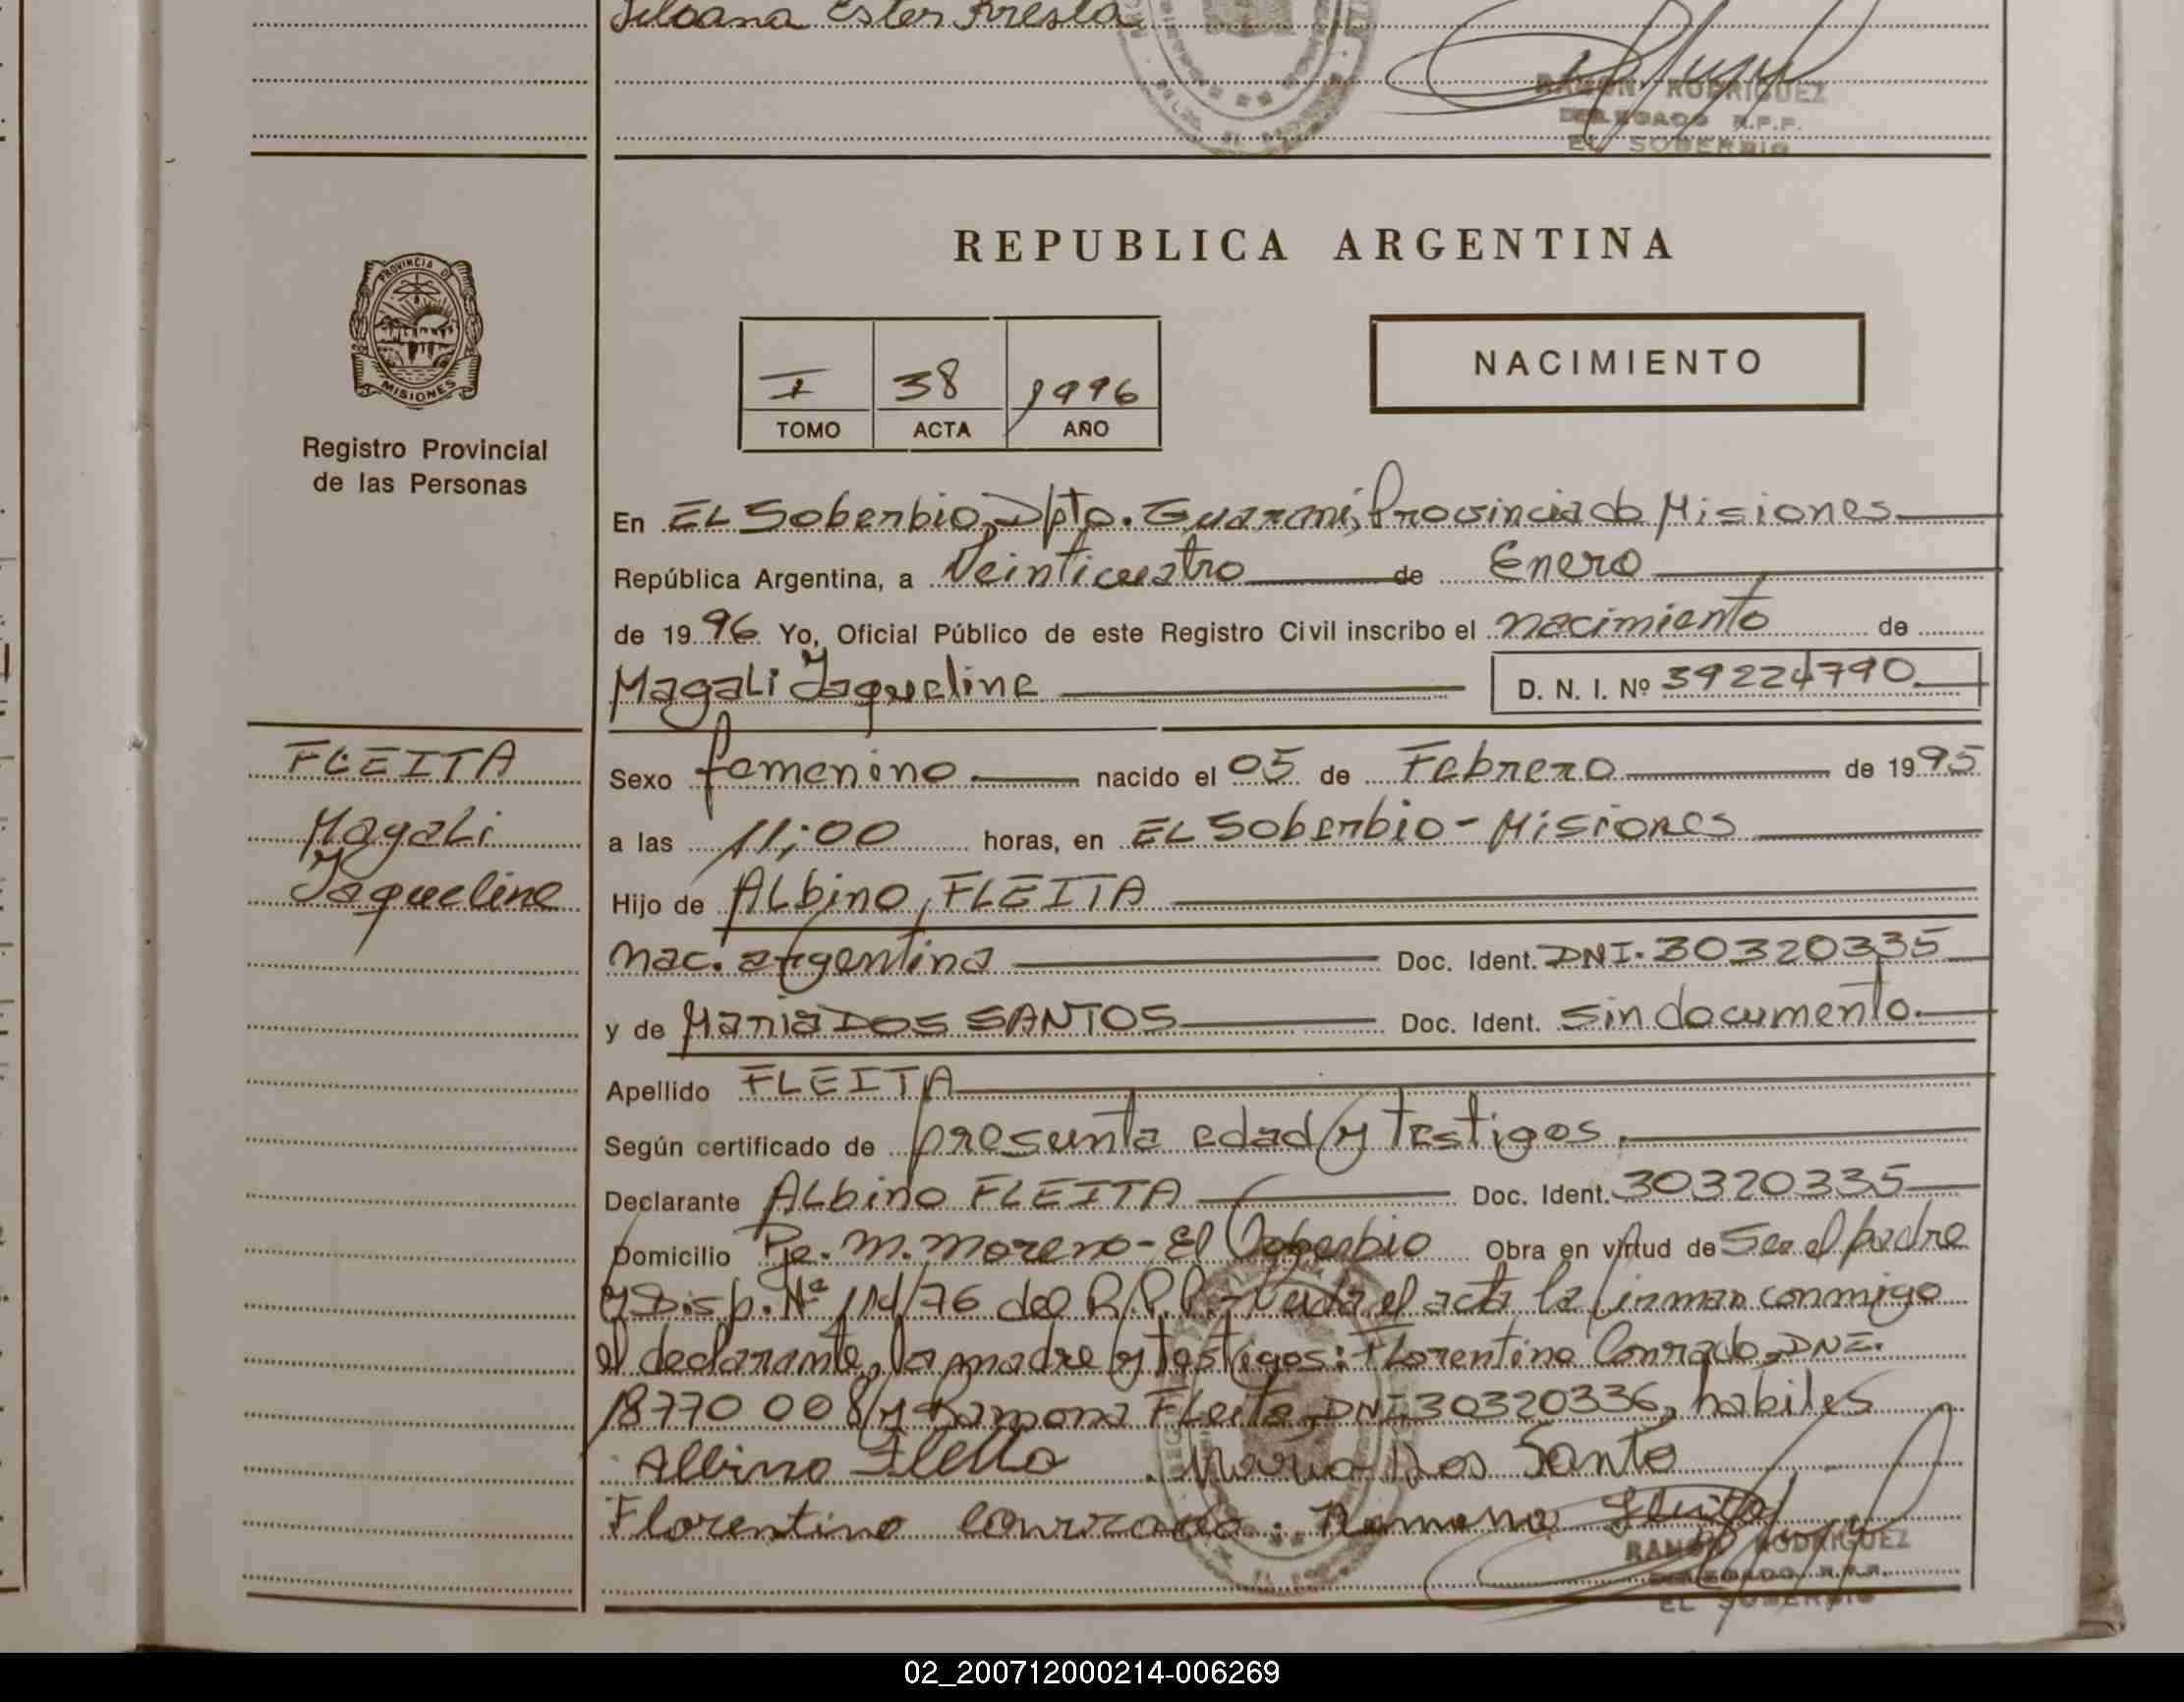 Ester Kresta
RAMON RODRIGUEZ
DELEGADO R.P.P.
EL SOBERBIO
PROVINCIA DE
MISIONES
Registro Provincial
de las Personas
REPUBLICA ARGENTINA
I 38 1996
TOMO ACTA AÑO
NACIMIENTO
En EL Soberbio, Dpto. Guaraní, Provincia de Misiones
República Argentina, a Veinticuatro de Enero
de 1996 Yo, Oficial Público de este Registro Civil inscribo el nacimiento de
Magali Jaqueline D. N. I. Nº 39224790
FLEITA
Magali
Jaqueline
Sexo femenino nacido el 05 de Febrero de 1995
a las 11;00 horas, en EL Soberbio - Misiones
Hijo de ALbino, FLEITA
nac. argentina Doc. Ident. DNI. 30320335
y de Maria DOS SANTOS Doc. Ident. sin documento.
Apellido FLEITA
Según certificado de presunta edad y testigos.
Declarante ALbino FLEITA Doc. Ident. 30320335
Domicilio Pje. M. Moreno - El Soberbio Obra en virtud de Ser el padre
y Disp. Nº 114/76 del R.P.P. - Leida el acta la firman conmigo
el declarante, la madre y testigos: Florentino Conrado, DNI.
18770 008 y Ramona Fleita, DNI 30320336, habiles
Albino Fleita Maria Dos Santo
Florentino Conrrado. Ramona Fleita
RAMON RODRIGUEZ
DELEGADO R.P.P.
EL SOBERBIO
02_200712000214-006269